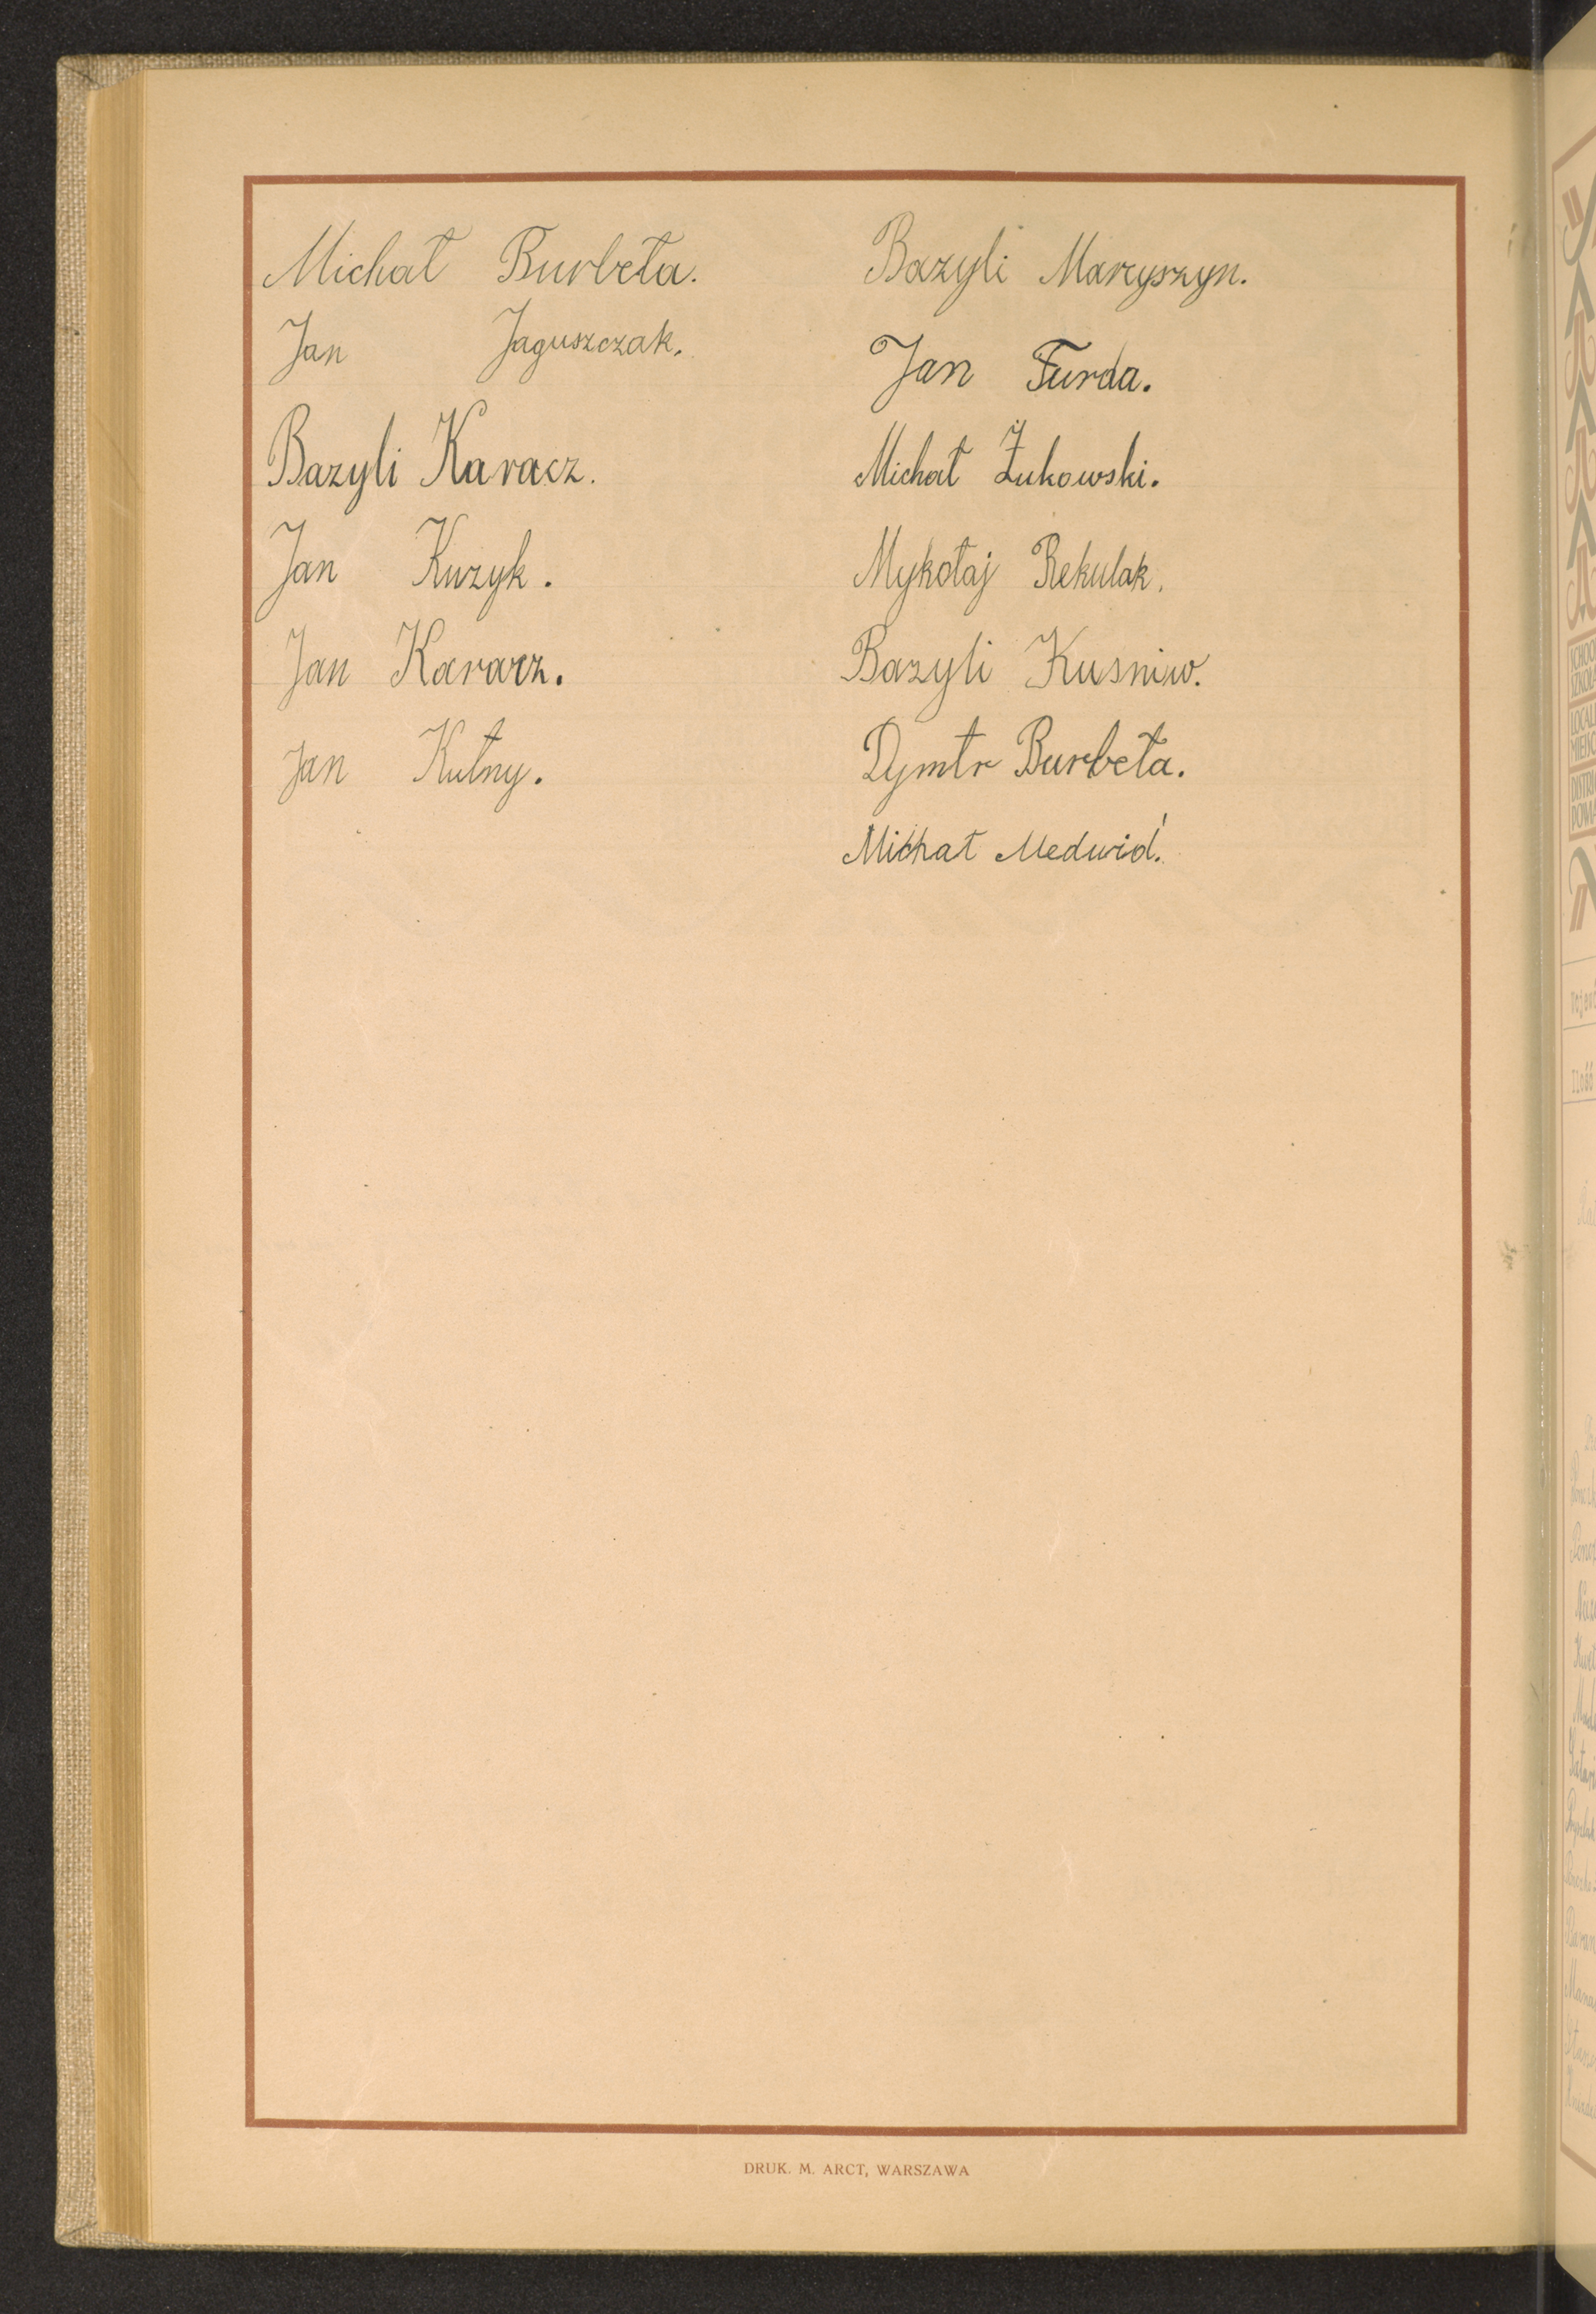 Michał Burbeła.
Jan Jaguszczak.
Bazyli Karacz.
Jan Kuzyk.
Jan Karacz.
Jan Kutny.
Bazyli Marcyszyn.
Jan Furda.
Michał Żukowski.
Mykołaj Rekulak.
Bazyli Kusniw.
Dymtr Burbeła.
Michał Medwid́.
DRUK. M. ARCT, WARSZAWA